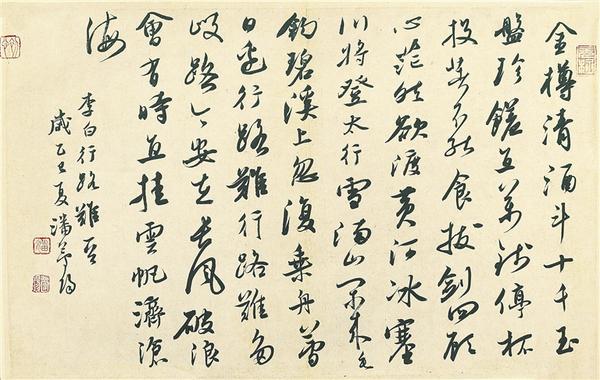 金樽清酒斗十千玉
盤珍饈直萬錢停杯
投箸不能食拔劍四顧
心茫然欲渡黃河冰塞
川將登太行雪滿山閑來垂
釣碧溪上忽復乘舟夢
日邊行路難行路難多
歧路今安在長風破浪
會有時直挂雲帆濟滄
海
李白行路難
歲乙夏潘